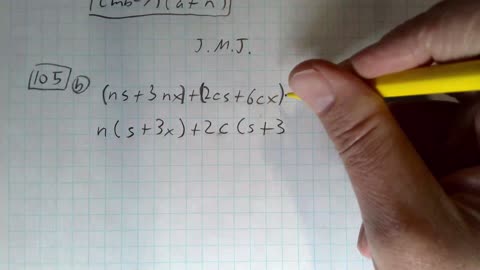 (mb-7)(a+n)
J.M.J.
105 b (ns+3nx)+(2cs+6cx)
n(s+3x)+2c(s+3